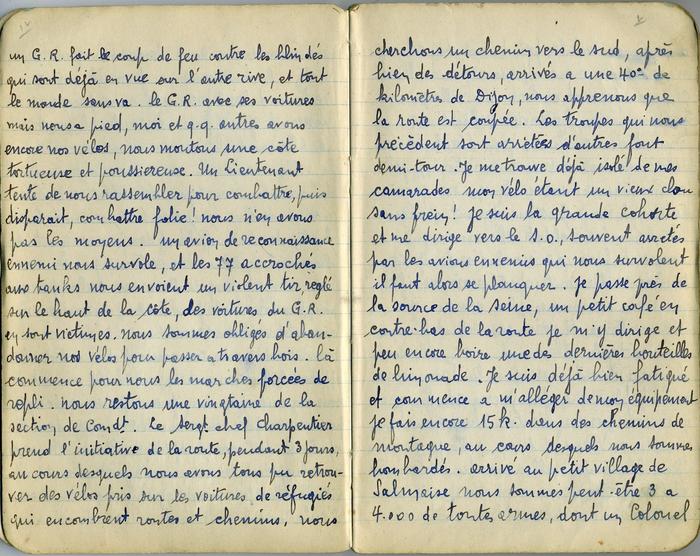 un G.R. fait le coup de feu contre les blindés
qui sont déjà en vue sur l'autre rive, et tout
le monde sans va. le G.R. avec ses voitures
mais nous a pied, moi et q.q. autres avons
encore nos vélos, nous montons une côte
tortueuse et poussiereuse. Un Lieutenant
tente de nous rassembler pour combattre, puis
disparait, combattre folie! nous n'en avons
pas les moyens. un avion de reconnaissance
ennemi nous survole, et les 77 accrochés
aux tanks nous envoient un violent tir reglé
sur le haut de la côte, des voitures du G.R.
en sont victimes. nous sommes obligés d'aban-
donner nos vélos pour passer a travers bois. là
commence pour nous les marches forcées de
repli. nous restons une vingtaine de la
section de Comdt. Le sergt chef Charpentier
prend l'initiative de la route, pendant 3 jours,
au cours desquels nous avons tous pu retrou-
ver des vélos pris sur les voitures de réfugiés
qui encombrent routes et chemins, nous
V
cherchons un chemin vers le sud, après
bien des détours, arrivés a une 40ne de
kilomètres de Dijon, nous apprenons que
la route est coupée. Les troupes qui nous
precèdent sont arrêtées d'autres font
demi-tour. Je me trouve déjà isolé de mes
camarades mon vélo étant un vieux clou
sans frein! je suis la grande cohorte
et me dirige vers le S.O., souvent arretés
par les avions ennemis qui nous survolent
il faut alors se planquer. je passe près de
la source de la Seine, un petit café en
contre-bas de la route je m'y dirige et
peu encore boire une des dernières bouteilles
de limonade. Je suis déjà bien fatigué
et commence a m'alléger de mon équipement
je fais encore 15 k. dans des chemins de
montagne, au cours desquels nous sommes
bombardés. arrivé au petit village de
Salmaise nous sommes peut-être 3 a
4.000 de toutes armes, dont un Colonel